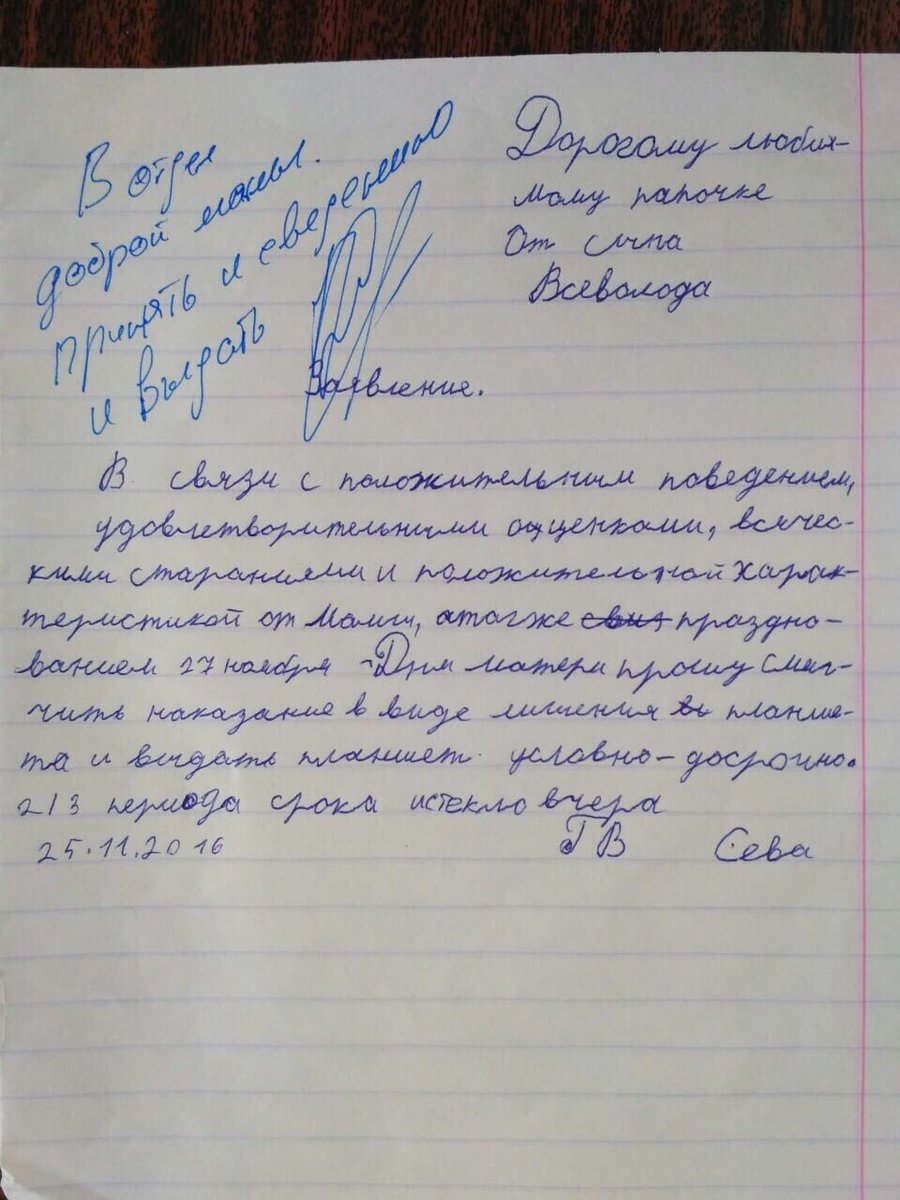 В отдел
доброй мамы.
принять к сведению
и выдать
Дорогому любим-
мому папочке
От сына
Всеволода
Заявление.
В связи с положительным поведением,
удовлетворительными оценками, всячес-
кими стараниями и положительной харак-
теристикой от Мамы, а также праздно-
ванием 27 ноября - Дня матери прошу смяг-
чить наказание в виде лишения планше-
та и выдать планшет условно-досрочно.
2/3 периода срока истекло вчера
25.11.2016 ГВ Сева